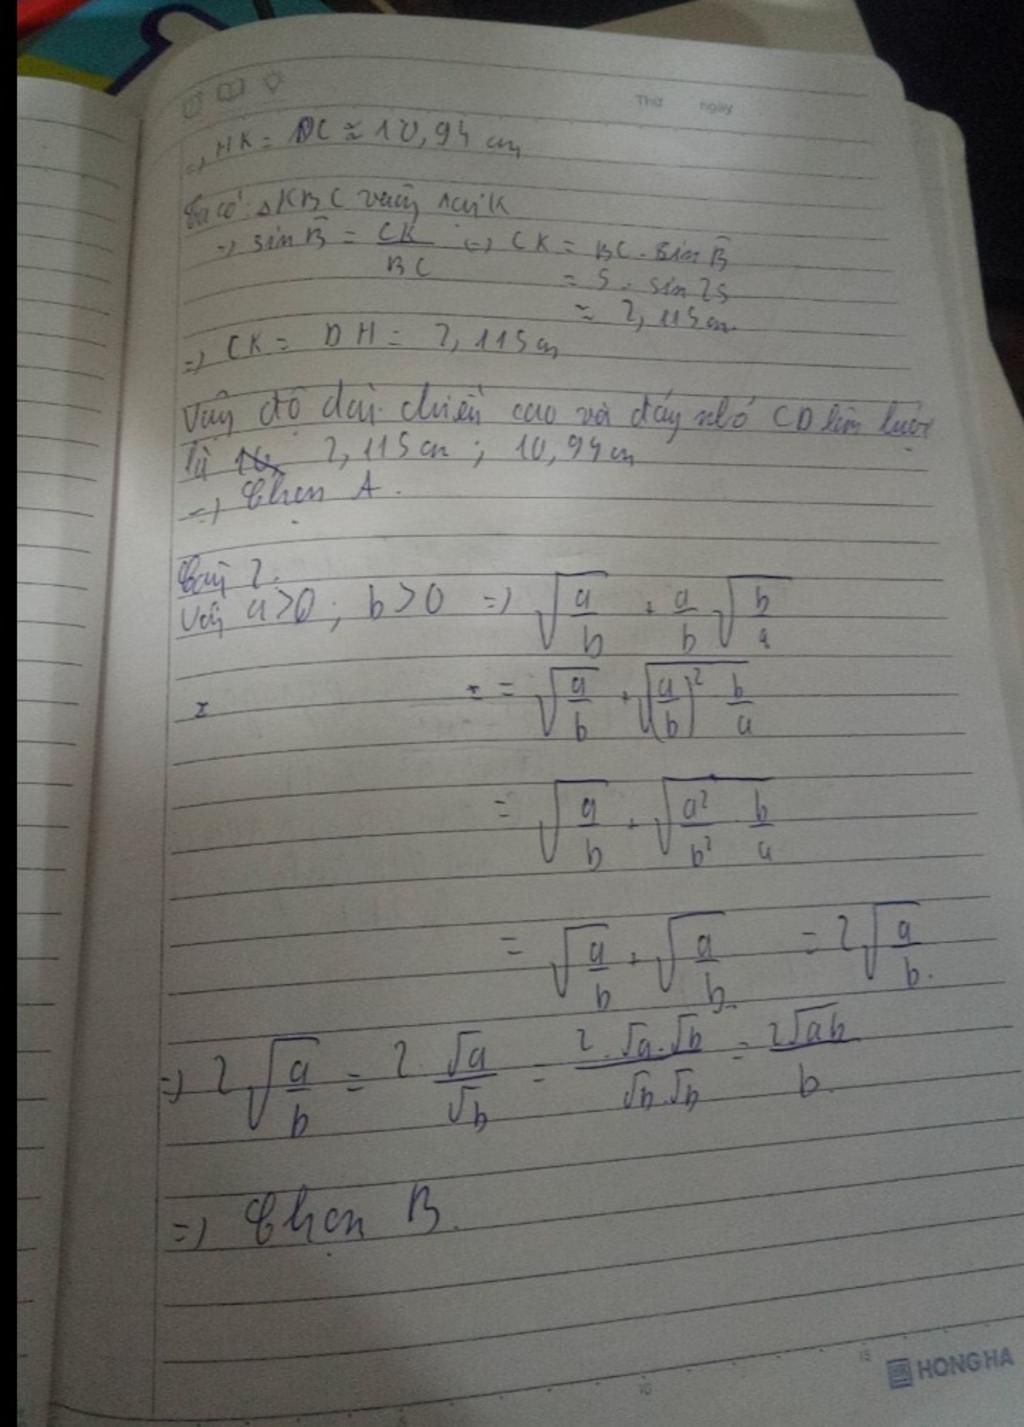 Thứ ngày
=> HK = DC ≈ 10,94 cm
Ta có: △KBC vuông tại K
=> sin B̂ = CK/BC => CK = BC . sin B̂
= 5 . sin 25
≈ 2,115 cm.
=> CK = DH = 2,115 cm
Vậy độ dài chiều cao và đáy nhỏ CD lần lượt
là 2,115 cm ; 10,94 cm
=> Chọn A.
Bài 2.
Với a>0 ; b>0 => √(a/b) + a/b √(b/a)
= √(a/b) + √((a/b)² b/a)
= √(a/b) + √(a²/b² . b/a)
= √(a/b) + √(a/b) = 2√(a/b).
=> 2√(a/b) = 2 . √a/√b = 2.√a.√b/√b.√b = 2√ab/b.
=> Chọn B.
10 15
HONG HA